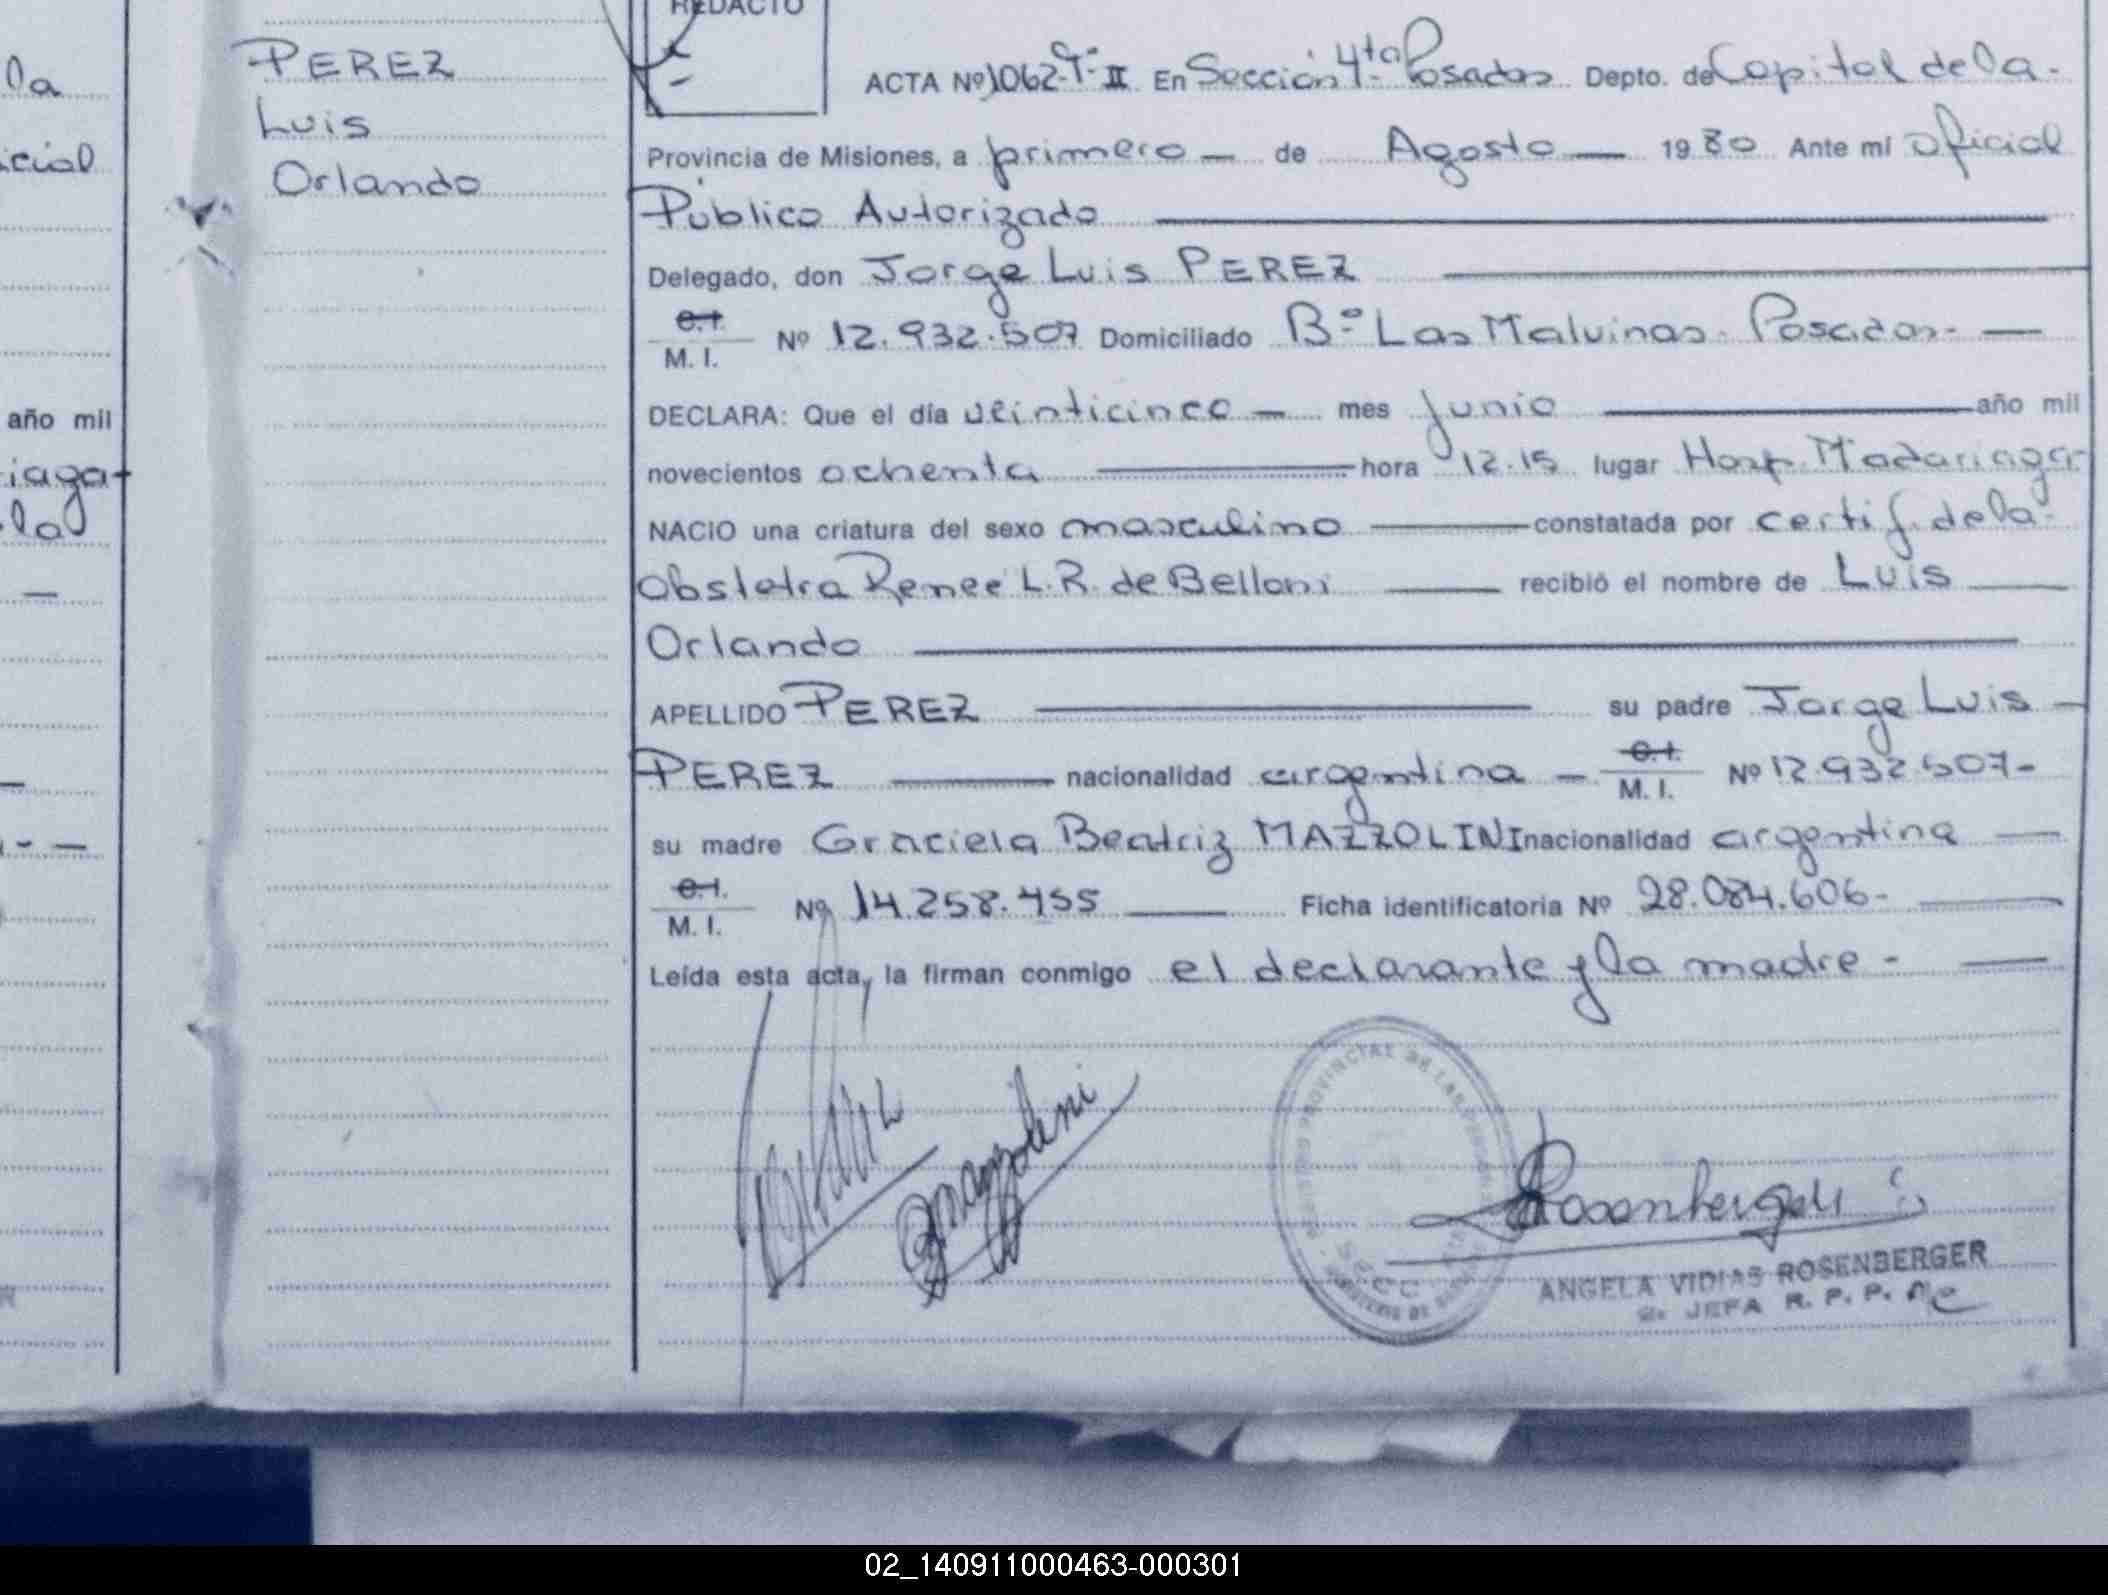 la
icial
año mil
iaga
la
PEREZ
Luis
Orlando
REDACTO
ACTA Nº 1062-T-II En Sección 4ta Posadas Depto. de Capital de la-
Provincia de Misiones, a primero — de Agosto — 1980 Ante mi oficial
Público Autorizado
Delegado, don Jorge Luis PEREZ
C.I.
M. I. Nº 12.932.507 Domiciliado Bº Las Malvinas- Posadas- —
DECLARA: Que el día veinticinco — mes Junio — año mil
novecientos ochenta — hora 12.15 lugar Hosp. Madariaga-
NACIO una criatura del sexo masculino — constatada por certif. de la-
Obstetra Renee L.R. de Belloni — recibió el nombre de Luis —
Orlando —
APELLIDO PEREZ — su padre Jorge Luis —
PEREZ — nacionalidad argentina — C.I. M. I. Nº 12.932.507-
su madre Graciela Beatriz MAZZOLINI nacionalidad argentina —
C.I.
M. I. Nº 14.258.455 — Ficha identificatoria Nº 28.084.606- —
Leída esta acta, la firman conmigo el declarante y la madre- —
Gmazzolini
PROVINCIAL DE LAS PERSONAS
Rosenberger
ANGELA VIDIAS ROSENBERGER
2. JEFA R. P. P.
02_140911000463-000301